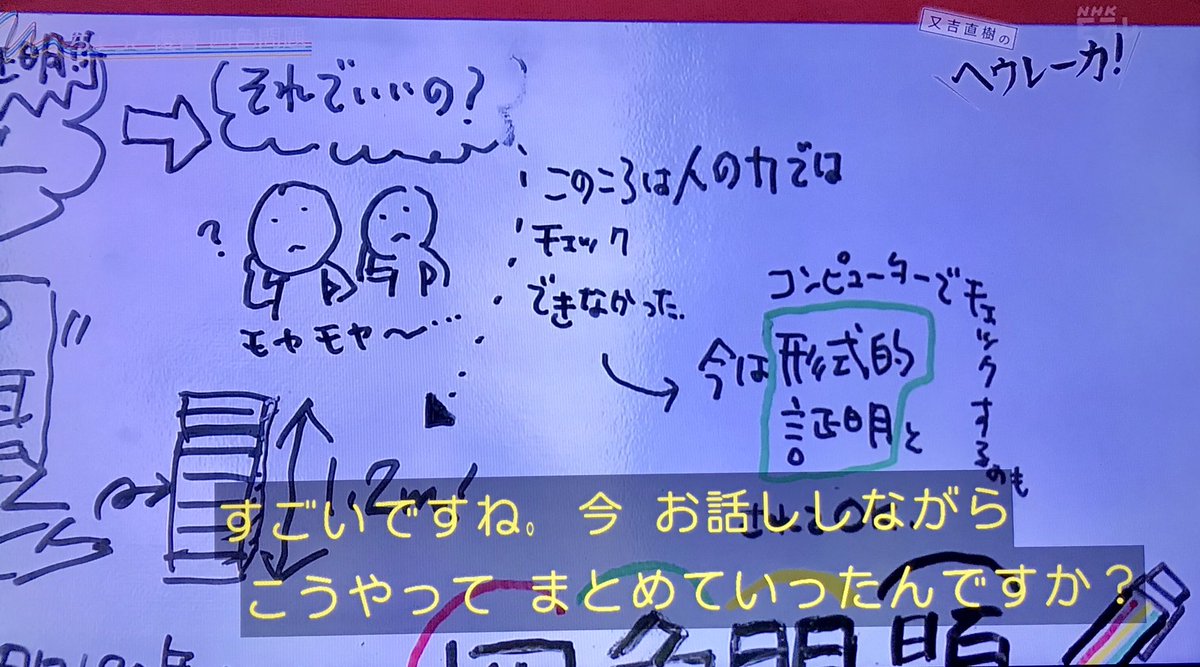 NHK
又吉直樹の
ヘウレーカ！
それでいいの？
？
モヤモヤ〜…
このころは人の力では
チェック
できなかった.
コンピューターでチェックするのも
今は形式的
証明と
1.2m!
すごいですね。今 お話ししながら
こうやって まとめていったんですか？
四色問題